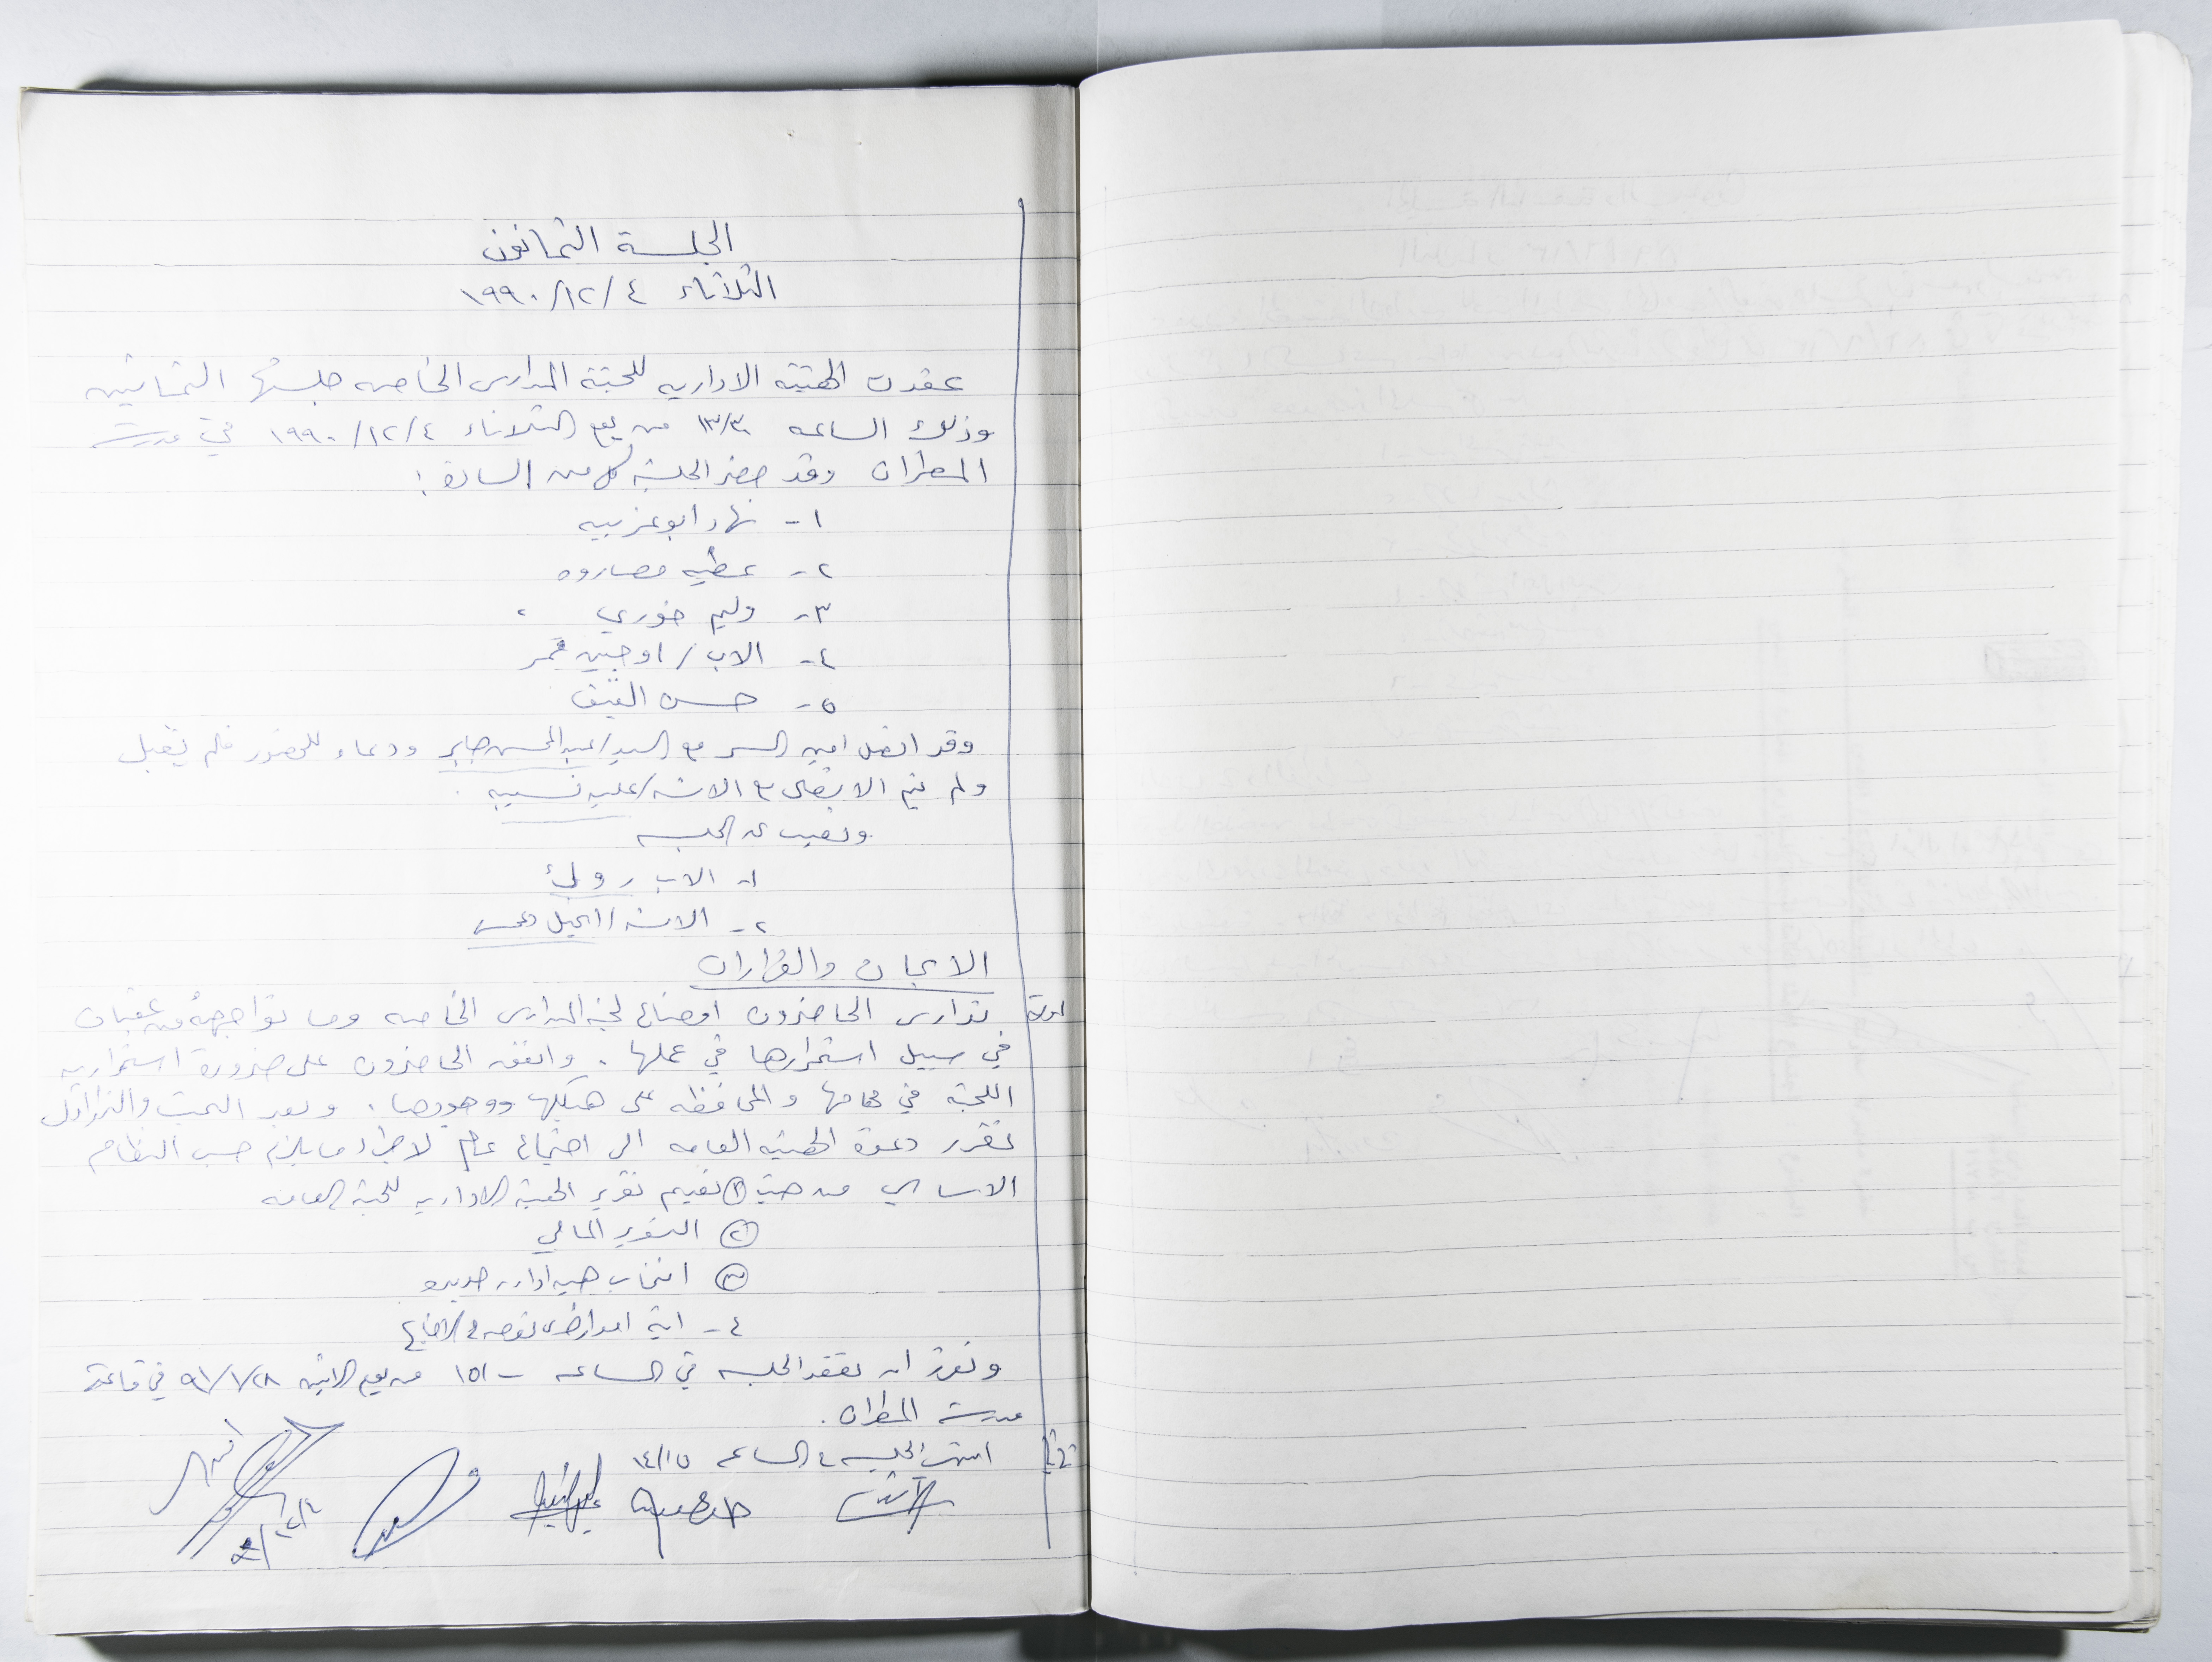 الجلسة الثمانون
الثلاثاء ٤/١٢/١٩٩٠
عقدت الهيئة الادارية للجنة المدارس الخاصه جلستها الثمانين
وذلك الساعه ١٣/٣٠ من يوم الثلاثاء ٤/١٢/١٩٩٠ في مدرسة
المطران وقد حضر الجلسة كل من السادة:
١- نهاد ابو غربيه
٢- عطيه مصاروه
٣- وليم خوري
٤- الاب / اوجين قمر
٥- حسن القيق
وقد اتصل امين السر مع السيد/عبد المحسن جابر ودعاه للحضور فلم يقبل
ولم يتم الاتصال مع الانسه/عليه نسيبه.
وتغيب عن الجلسه
١- الاب رولف
٢- الانسه/انجيل دعمس
الابحاث والقرارات
اولا تدارس الحاضرون اوضاع لجنة المدارس الخاصه وما تواجهه من عقبات
في سبيل استمرارها في عملها. واتفق الحاضرون على ضرورة استمراريه
اللجنة في مهامها والمحافظه على هيكلها ووجودها. وبعد البحث والتداول
تقرر دعوة الهيئه العامه الى اجتماع عام لاجراء ما يلزم حسب النظام
الاساسي من حيث ① تقييم تقرير الهيئة الاداريه للجنة العامه
② التقرير المالي
③ انتخاب هيئه اداريه جديده
٤- اية امور اخرى تعرض في الاجتماع
وتقرر ان تعقد الجلسه في الساعه -/١٥ من يوم الاثنين ٩١/١/٢٨ في قاعة
مدرسة المطران.
ثانيا انتهت الجلسه في الساعه ١٤/١٥